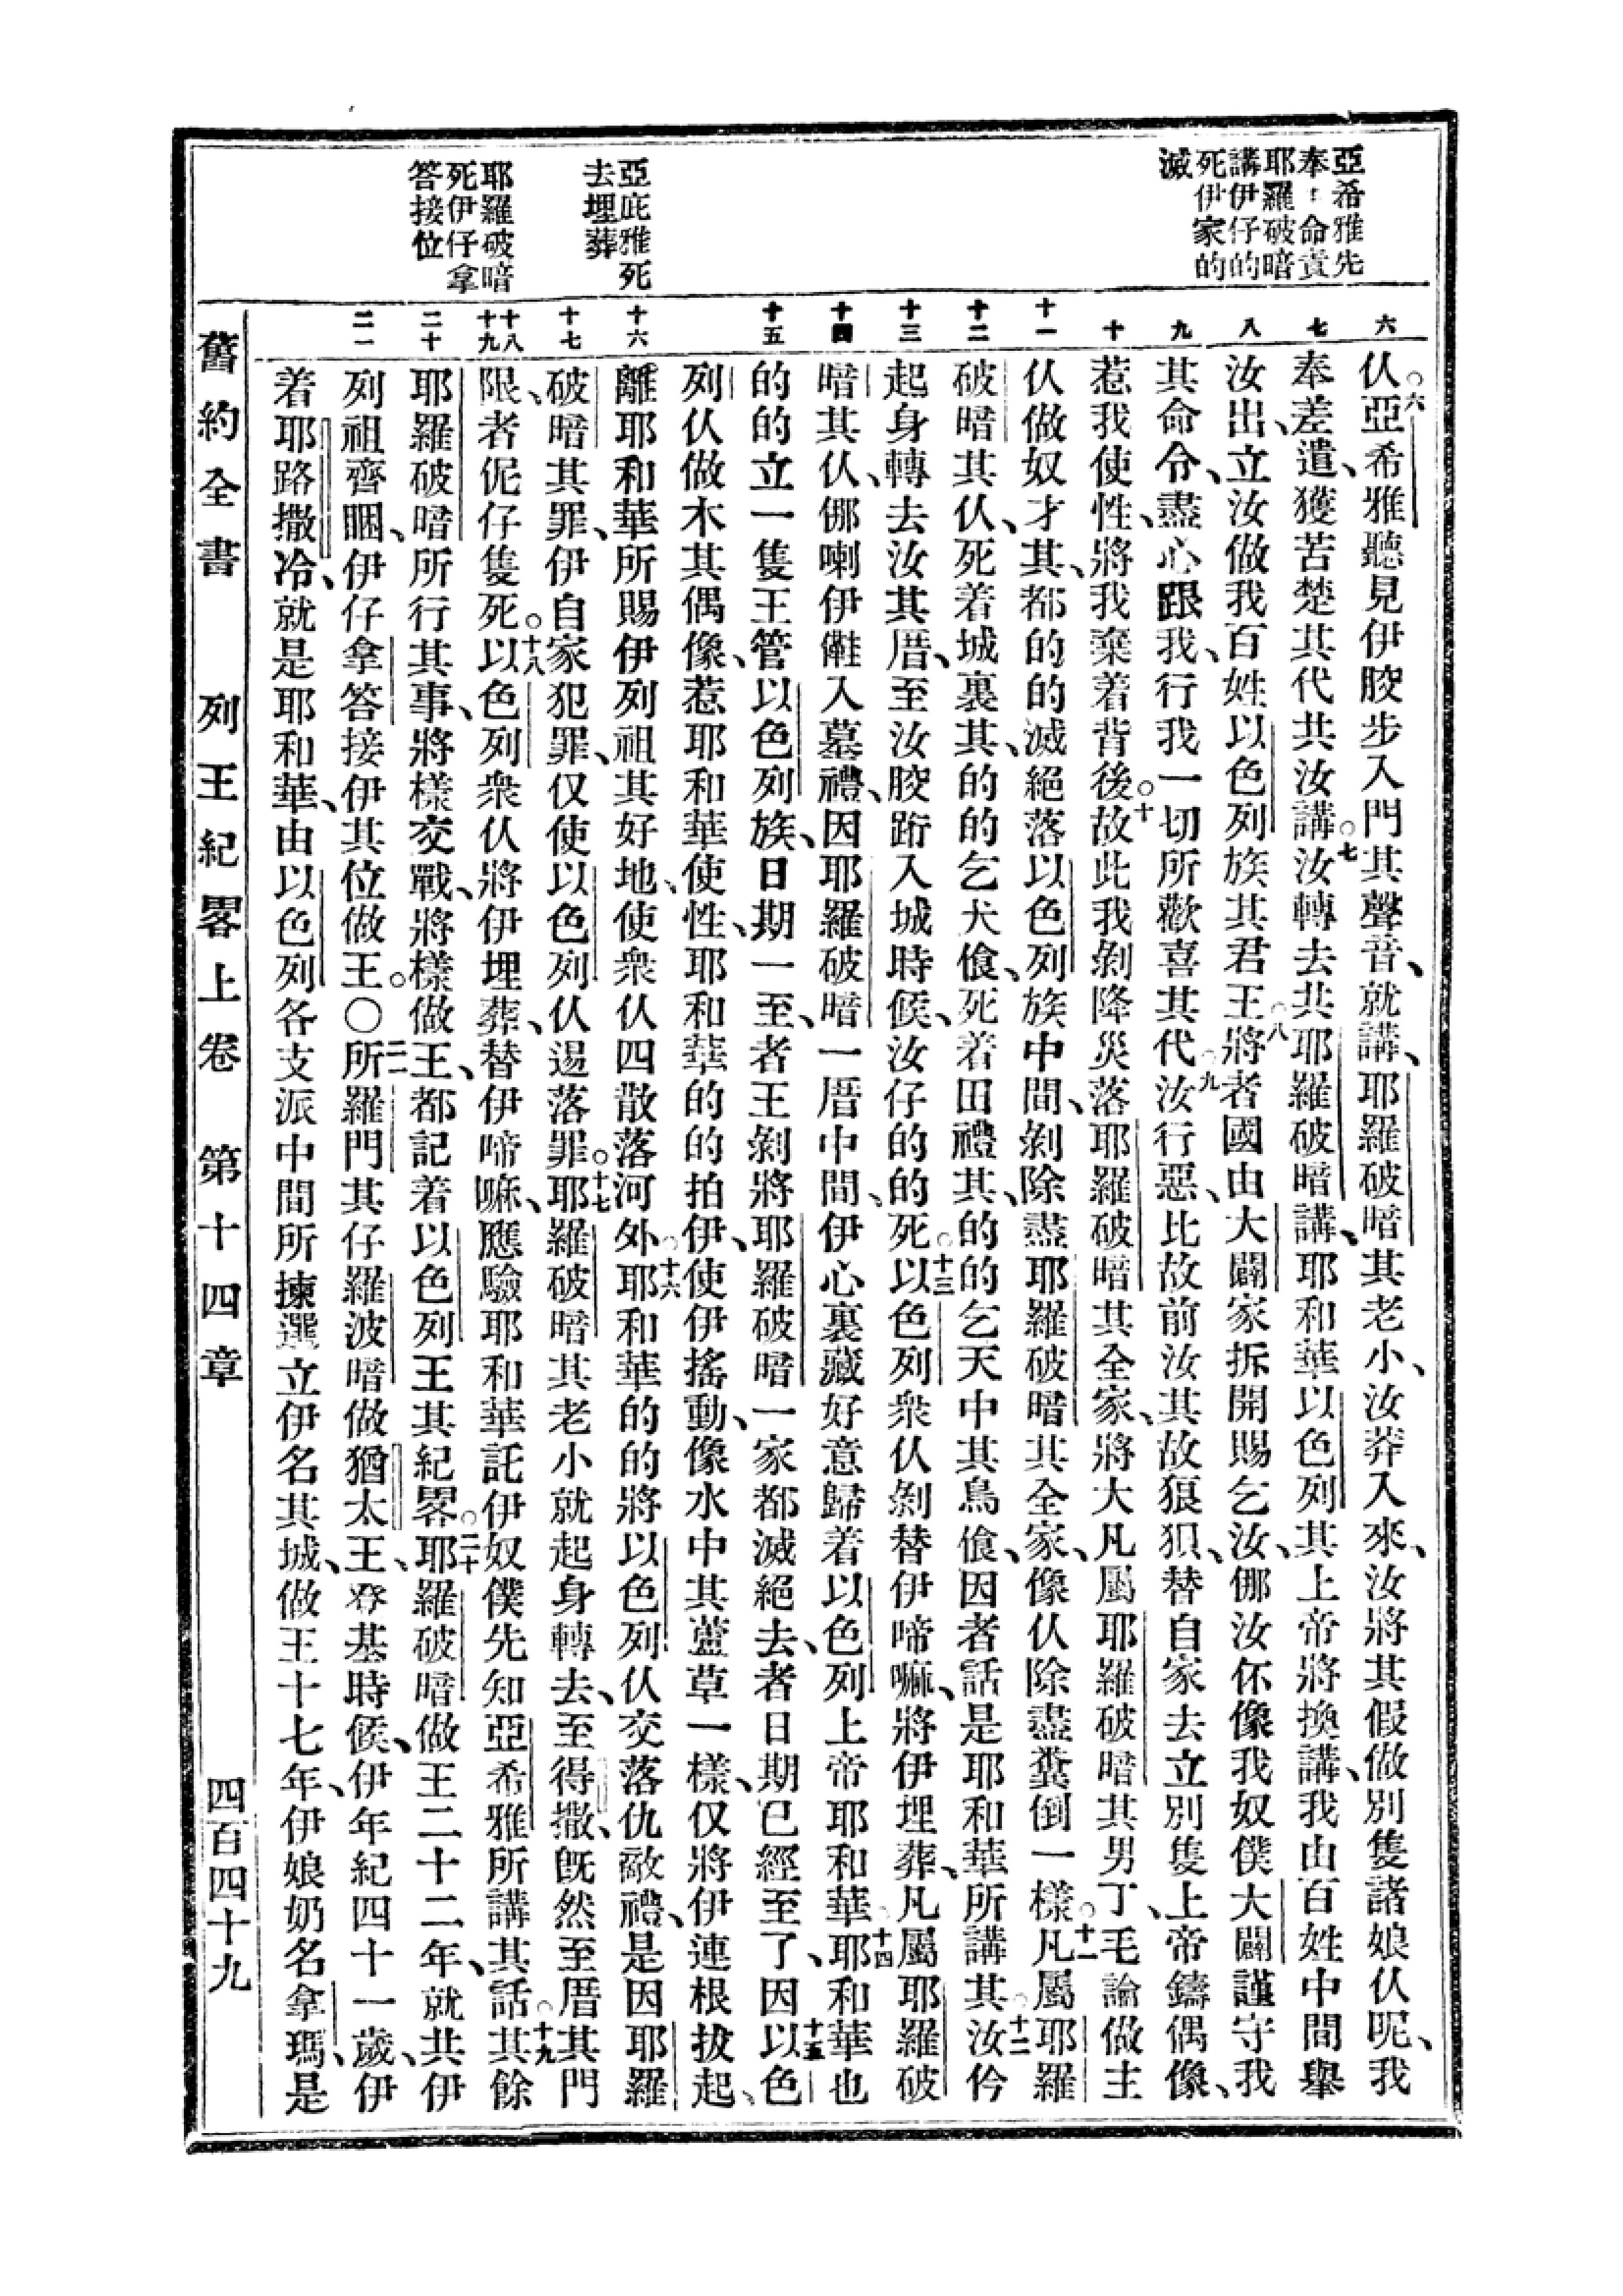 亞希雅先
奉主命責
耶羅破暗
講伊仔的
死伊家的
滅
亞庇雅死
去埋葬
耶羅破暗
死伊仔拿
答接位
六
七
八
九
十
十一
十二
十三
十四
十五
十六
十七
十八
十九
二十
二一
仈。六亞希雅聽見伊骹步入門其聲音、就講、耶羅破暗其老小、汝莽入來、汝將其假做別隻諸娘仈呢、我
奉差遣、獲苦楚其代共汝講。七汝轉去共耶羅破暗講、耶和華以色列其上帝將換講、我由百姓中間舉
汝出、立汝做我百姓以色列族其君王。八將者國由大闢家拆開賜乞汝、㑚汝伓像我奴僕大闢謹守我
其命令、盡心跟我、行我一切所歡喜其代。九汝行惡、比故前汝其故狼狽、替自家去立別隻上帝鑄偶像、
惹我使性、將我棄着背後。十故此我剝降災落耶羅破暗其全家、將大凡屬耶羅破暗其男丁、毛論做主
仈做奴才其、都的的滅絕落以色列族中間、剝除盡耶羅破暗其全家、像仈除盡糞倒一樣。十一凡屬耶羅
破暗其仈、死着城裏其、的的乞犬飡、死着田禮其、的的乞天中其鳥飡、因者話是耶和華所講其。十二汝仱
起身轉去汝其厝、至汝骹跴入城時候、汝仔的的死。十三以色列衆仈剝替伊啼嘛、將伊埋葬、凡屬耶羅破
暗其仈、㑚喇伊㒲入墓禮、因耶羅破暗一厝中間、伊心裏藏好意歸着以色列上帝耶和華。十四耶和華也
的的立一隻王管以色列族、日期一至、者王剝將耶羅破暗一家都滅絕去、者日期已經至了、十五因以色
列仈做木其偶像、惹耶和華使性、耶和華的的拍伊、使伊搖動、像水中其蘆草一樣、仅將伊連根拔起、
離耶和華所賜伊列祖其好地、使衆仈四散落河外。十六耶和華的的將以色列仈交落仇敵禮、是因耶羅
破暗其罪、伊自家犯罪、仅使以色列仈逿落罪。十七耶羅破暗其老小就起身轉去、至得撒、旣然至厝其門
限、者伲仔隻死。十八以色列衆仈將伊埋葬、替伊啼嘛、應驗耶和華託伊奴僕先知亞希雅所講其話。十九其餘
耶羅破暗所行其事、將樣交戰、將樣做王、都記着以色列王其紀畧。二十耶羅破暗做王二十二年、就共伊
列祖齊䀄、伊仔拿答接伊其位做王。〇二一所羅門其仔羅波暗做猶太王、登基時候、伊年紀四十一歲、伊
着耶路撒冷、就是耶和華、由以色列各支派中間所揀選立伊名其城、做王十七年、伊娘奶名拿瑪、是
舊約全書 列王紀畧上卷 第十四章 四百四十九